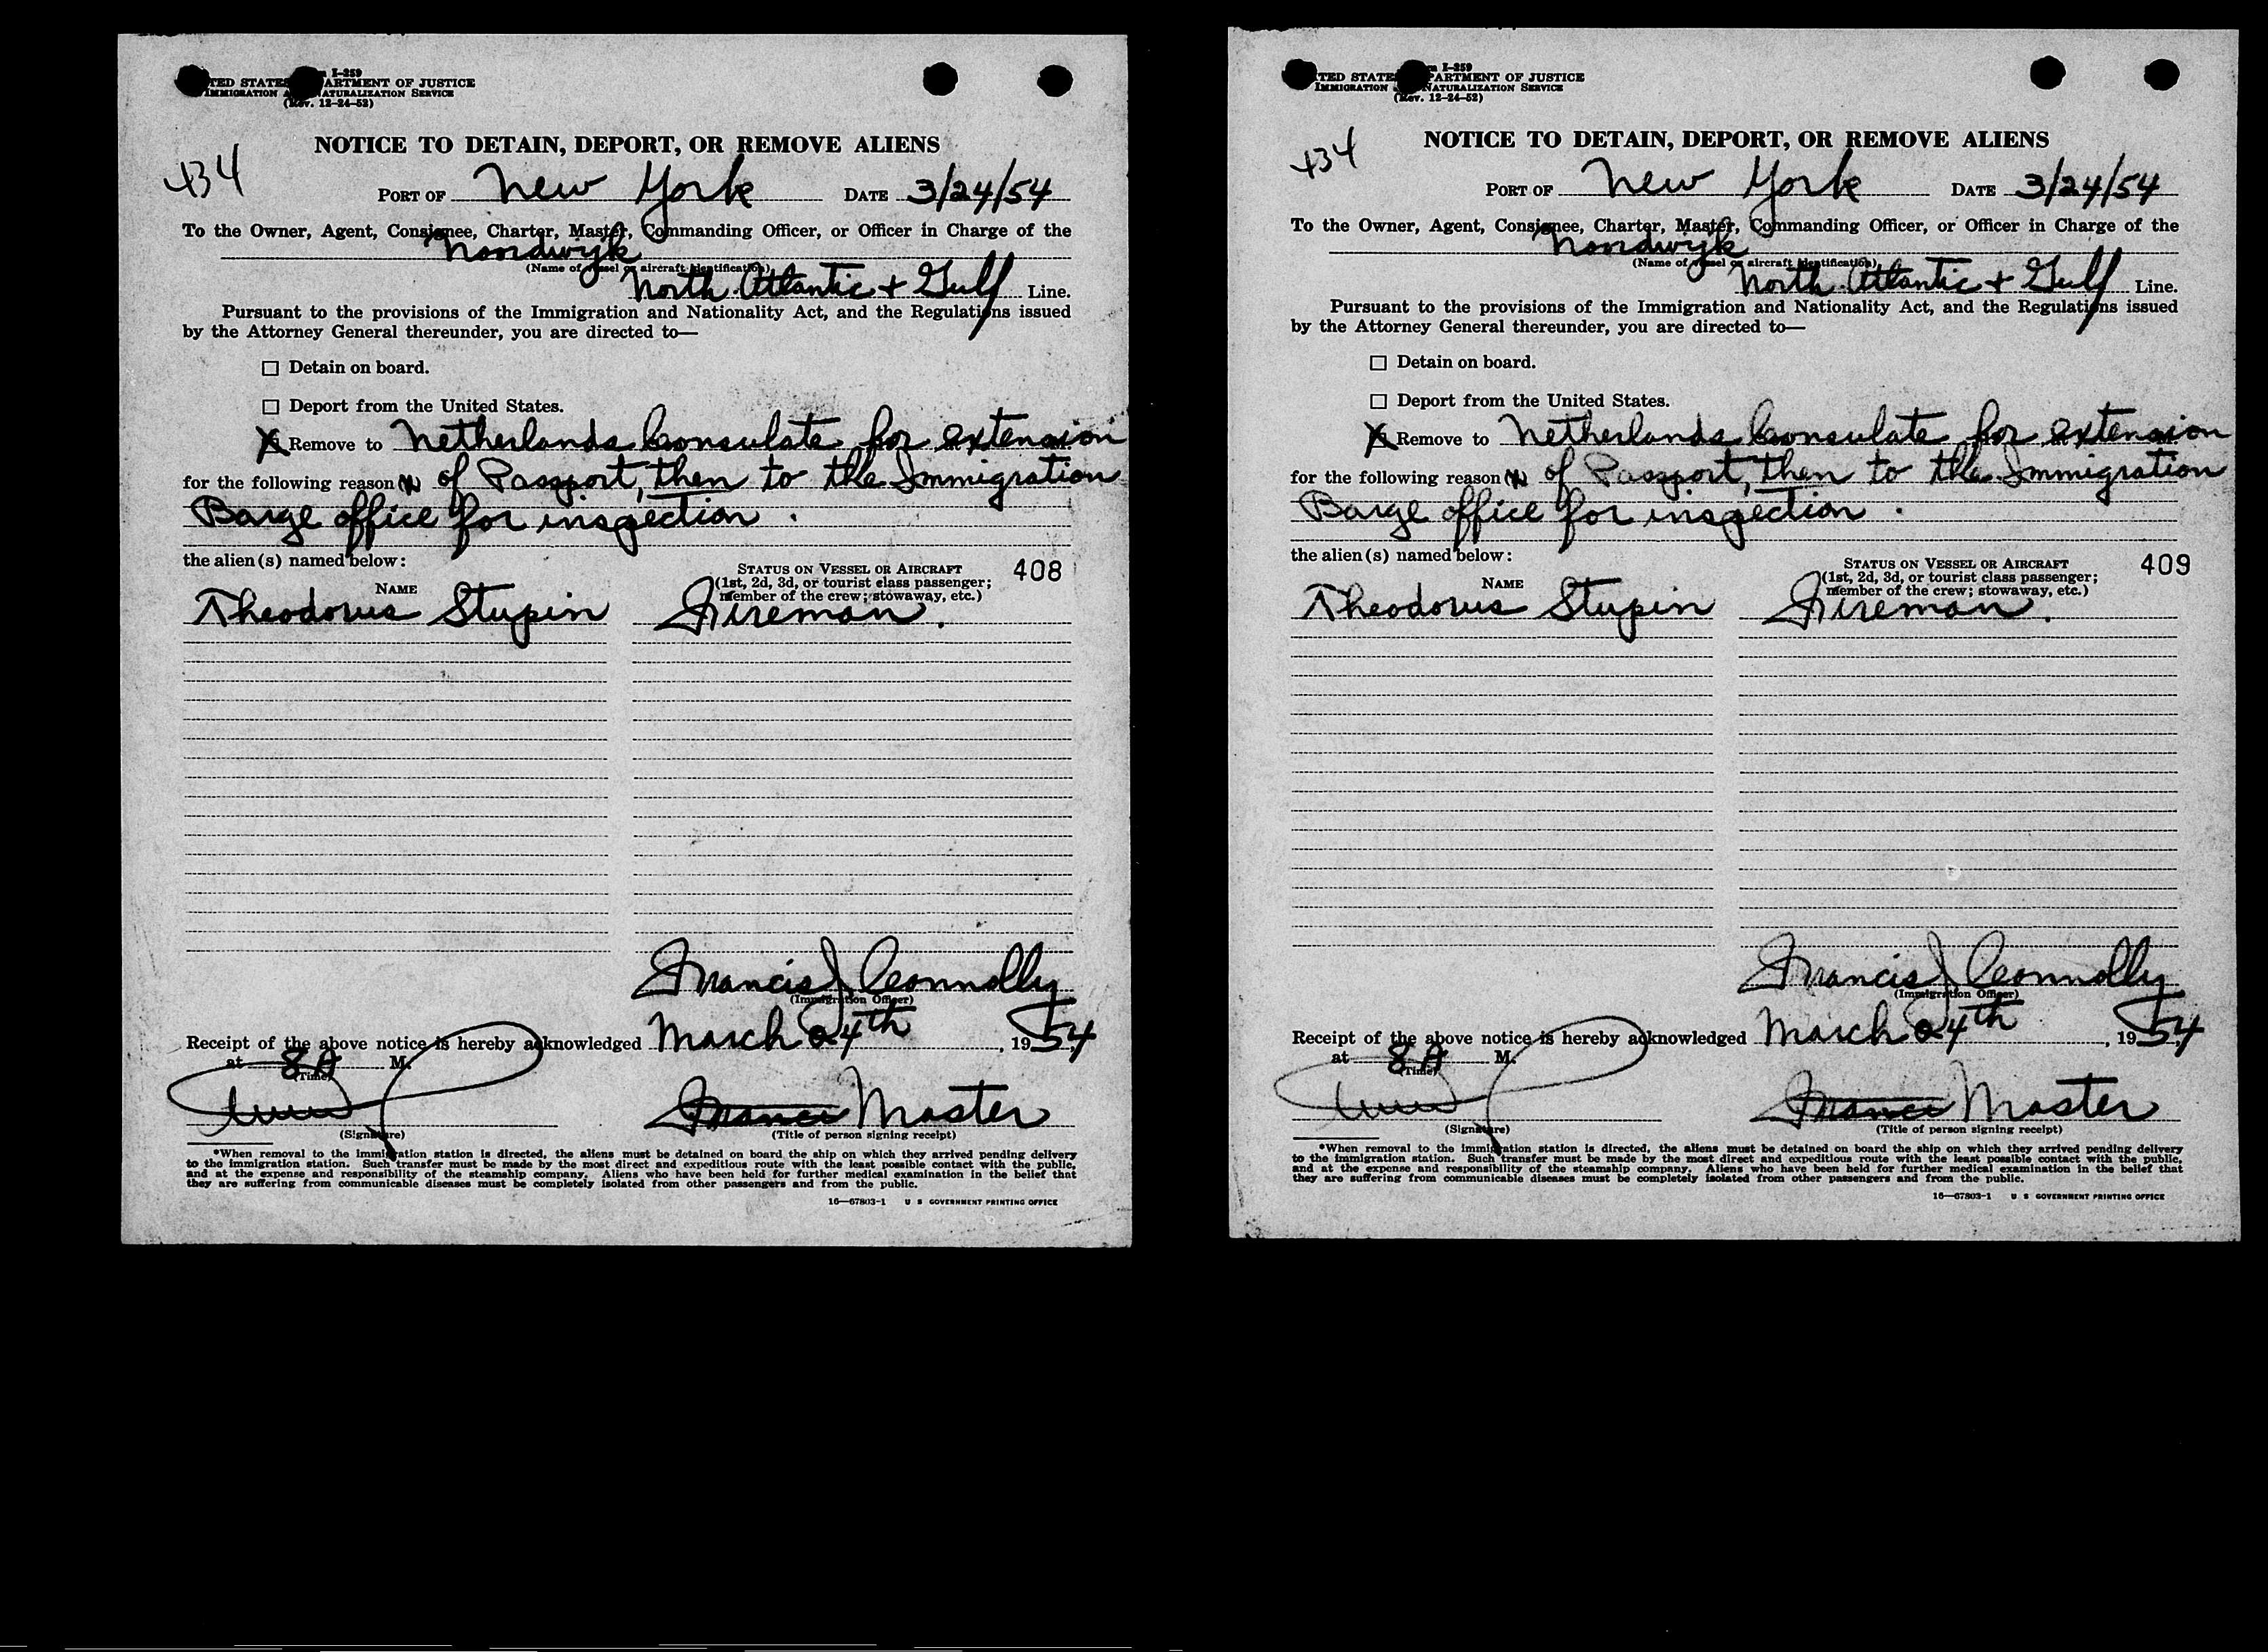 Form I-259
UNITED STATES DEPARTMENT OF JUSTICE
IMMIGRATION AND NATURALIZATION SERVICE
(Rev. 12-24-52)
NOTICE TO DETAIN, DEPORT, OR REMOVE ALIENS
434
PORT OF New York DATE 3/24/54
To the Owner, Agent, Consignee, Charter, Master, Commanding Officer, or Officer in Charge of the
Noordwijk
(Name of vessel or aircraft identification)
North Atlantic + Gulf Line.
Pursuant to the provisions of the Immigration and Nationality Act, and the Regulations issued
by the Attorney General thereunder, you are directed to—
☐ Detain on board.
☐ Deport from the United States.
X Remove to Netherlands Consulate for extension
for the following reason of Passport, then to the Immigration
Barge office for inspection.
the alien(s) named below:
STATUS ON VESSEL OR AIRCRAFT 408
NAME (1st, 2d, 3d, or tourist class passenger;
member of the crew; stowaway, etc.)
Theodorus Stupin Fireman.
Francis J Connolly
(Immigration Officer)
Receipt of the above notice is hereby acknowledged March 24th, 1954
at 8 A M.
(Time)
Master
(Signature) (Title of person signing receipt)
*When removal to the immigration station is directed, the aliens must be detained on board the ship on which they arrived pending delivery
to the immigration station. Such transfer must be made by the most direct and expeditious route with the least possible contact with the public,
and at the expense and responsibility of the steamship company. Aliens who have been held for further medical examination in the belief that
they are suffering from communicable diseases must be completely isolated from other passengers and from the public.
16—67803-1 U S GOVERNMENT PRINTING OFFICE
Form I-259
UNITED STATES DEPARTMENT OF JUSTICE
IMMIGRATION AND NATURALIZATION SERVICE
(Rev. 12-24-52)
NOTICE TO DETAIN, DEPORT, OR REMOVE ALIENS
434
PORT OF New York DATE 3/24/54
To the Owner, Agent, Consignee, Charter, Master, Commanding Officer, or Officer in Charge of the
Noordwijk
(Name of vessel or aircraft identification)
North Atlantic + Gulf Line.
Pursuant to the provisions of the Immigration and Nationality Act, and the Regulations issued
by the Attorney General thereunder, you are directed to—
☐ Detain on board.
☐ Deport from the United States.
X Remove to Netherlands Consulate for extension
for the following reason of Passport, then to the Immigration
Barge office for inspection.
the alien(s) named below:
STATUS ON VESSEL OR AIRCRAFT 409
NAME (1st, 2d, 3d, or tourist class passenger;
member of the crew; stowaway, etc.)
Theodorus Stupin Fireman.
Francis J Connolly
(Immigration Officer)
Receipt of the above notice is hereby acknowledged March 24th, 1954
at 8 A M.
(Time)
Master
(Signature) (Title of person signing receipt)
*When removal to the immigration station is directed, the aliens must be detained on board the ship on which they arrived pending delivery
to the immigration station. Such transfer must be made by the most direct and expeditious route with the least possible contact with the public,
and at the expense and responsibility of the steamship company. Aliens who have been held for further medical examination in the belief that
they are suffering from communicable diseases must be completely isolated from other passengers and from the public.
16—67803-1 U S GOVERNMENT PRINTING OFFICE